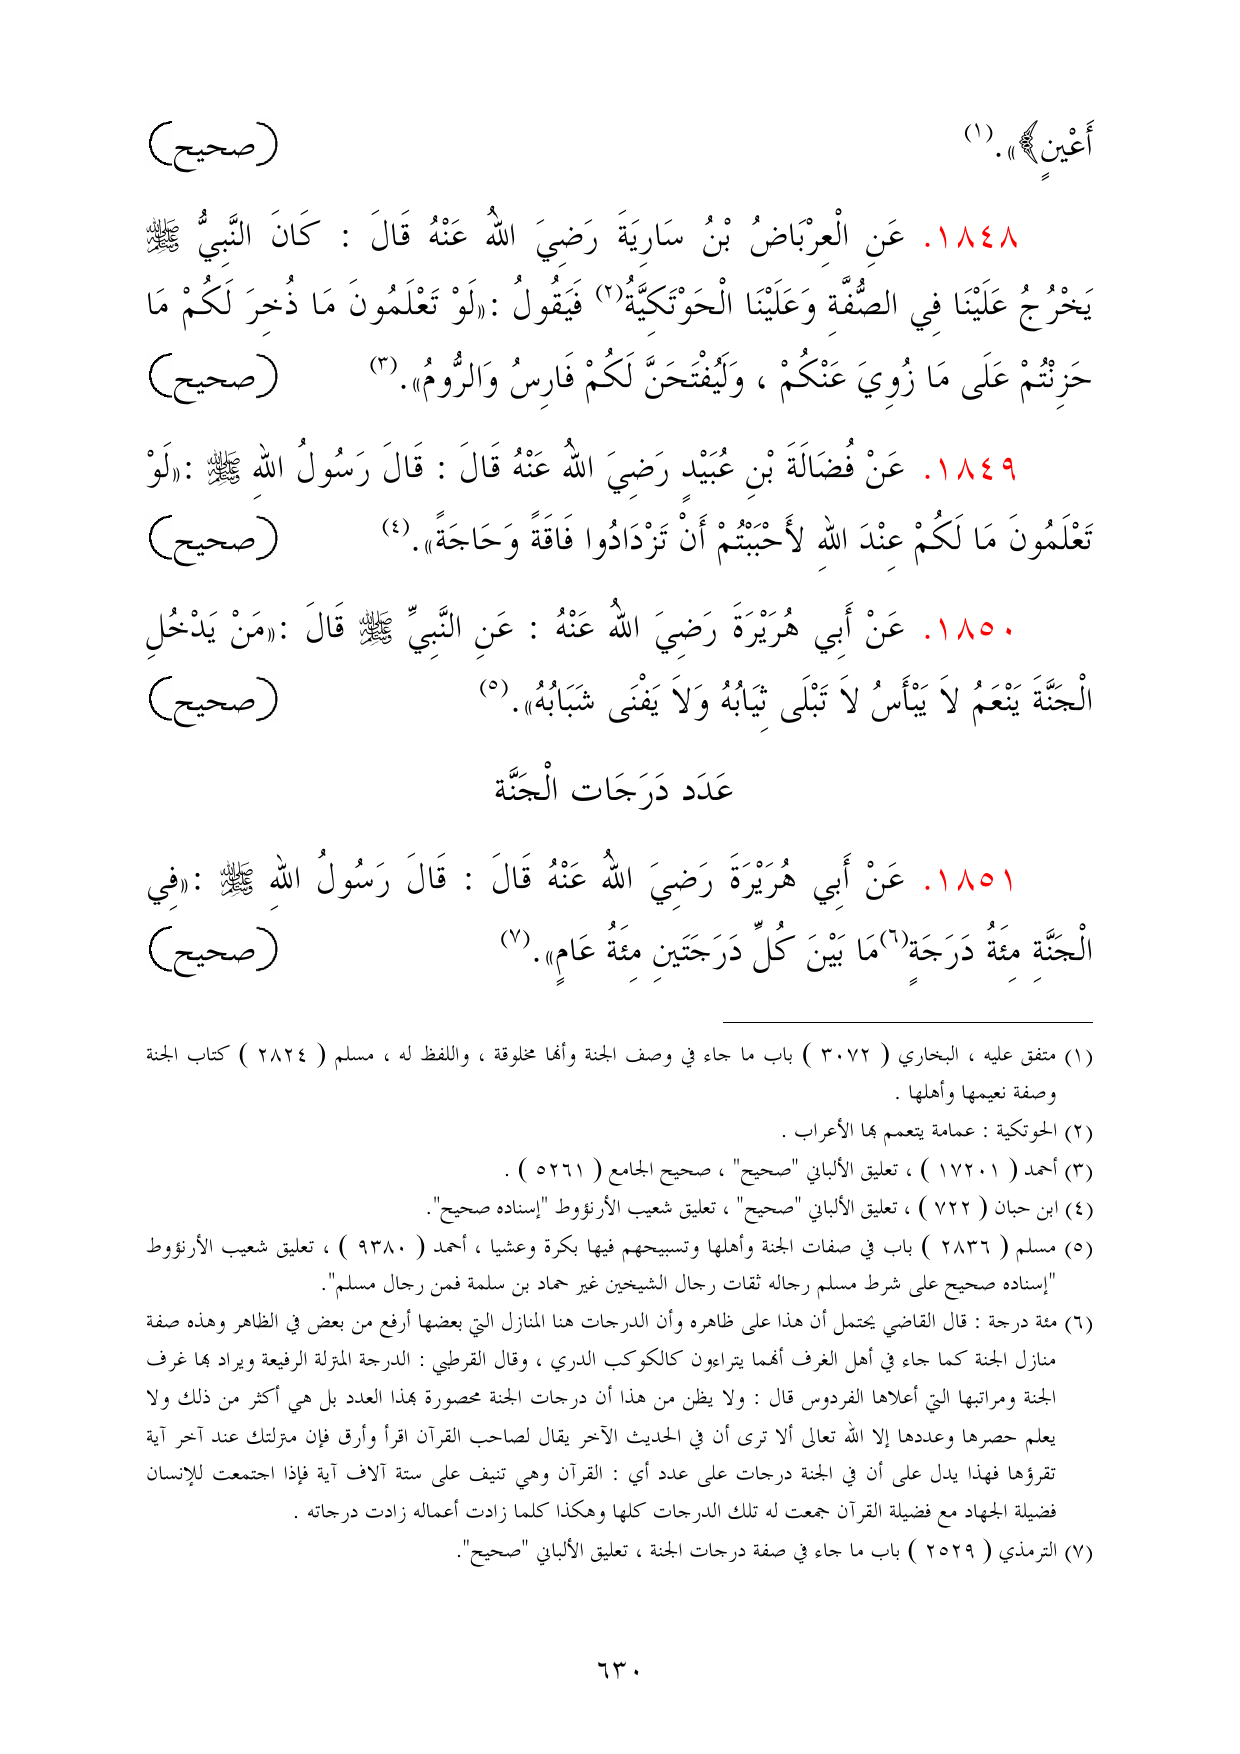 أَعْيُنٍ﴾». (١) (صحيح)
١٨٤٨. عَنِ الْعِرْبَاضُ بْنُ سَارِيَةَ رَضِيَ اللهُ عَنْهُ قَالَ : كَانَ النَّبِيُّ ﷺ
يَخْرُجُ عَلَيْنَا فِي الصُّفَّةِ وَعَلَيْنَا الْحَوْتَكِيَّةُ(٢) فَيَقُولُ :«لَوْ تَعْلَمُونَ مَا ذُخِرَ لَكُمْ مَا
حَزِنْتُمْ عَلَى مَا زُوِيَ عَنْكُمْ ، وَلَيُفْتَحَنَّ لَكُمْ فَارِسُ وَالرُّومُ». (٣) (صحيح)
١٨٤٩. عَنْ فُضَالَةَ بْنِ عُبَيْدٍ رَضِيَ اللهُ عَنْهُ قَالَ : قَالَ رَسُولُ اللهِ ﷺ :«لَوْ
تَعْلَمُونَ مَا لَكُمْ عِنْدَ اللهِ لأَحْبَبْتُمْ أَنْ تَزْدَادُوا فَاقَةً وَحَاجَةً». (٤) (صحيح)
١٨٥٠. عَنْ أَبِي هُرَيْرَةَ رَضِيَ اللهُ عَنْهُ : عَنِ النَّبِيِّ ﷺ قَالَ :«مَنْ يَدْخُلِ
الْجَنَّةَ يَنْعَمُ لاَ يَبْأَسُ لاَ تَبْلَى ثِيَابُهُ وَلاَ يَفْنَى شَبَابُهُ». (٥) (صحيح)
عَدَد دَرَجَات الْجَنَّة
١٨٥١. عَنْ أَبِي هُرَيْرَةَ رَضِيَ اللهُ عَنْهُ قَالَ : قَالَ رَسُولُ اللهِ ﷺ :«فِي
الْجَنَّةِ مِئَةُ دَرَجَةٍ(٦) مَا بَيْنَ كُلِّ دَرَجَتَينِ مِئَةُ عَامٍ». (٧) (صحيح)
(١) متفق عليه ، البخاري ( ٣٠٧٢ ) باب ما جاء في وصف الجنة وأنها مخلوقة ، واللفظ له ، مسلم ( ٢٨٢٤ ) كتاب الجنة
وصفة نعيمها وأهلها .
(٢) الحوتكية : عمامة يتعمم بها الأعراب .
(٣) أحمد ( ١٧٢٠١ ) ، تعليق الألباني "صحيح" ، صحيح الجامع ( ٥٢٦١ ) .
(٤) ابن حبان ( ٧٢٢ ) ، تعليق الألباني "صحيح" ، تعليق شعيب الأرنؤوط "إسناده صحيح".
(٥) مسلم ( ٢٨٣٦ ) باب في صفات الجنة وأهلها وتسبيحهم فيها بكرة وعشيا ، أحمد ( ٩٣٨٠ ) ، تعليق شعيب الأرنؤوط
"إسناده صحيح على شرط مسلم رجاله ثقات رجال الشيخين غير حماد بن سلمة فمن رجال مسلم".
(٦) مئة درجة : قال القاضي يحتمل أن هذا على ظاهره وأن الدرجات هنا المنازل التي بعضها أرفع من بعض في الظاهر وهذه صفة
منازل الجنة كما جاء في أهل الغرف أنهما يتراءون كالكوكب الدري ، وقال القرطبي : الدرجة المنزلة الرفيعة ويراد بها غرف
الجنة ومراتبها التي أعلاها الفردوس قال : ولا يظن من هذا أن درجات الجنة محصورة بهذا العدد بل هي أكثر من ذلك ولا
يعلم حصرها وعددها إلا الله تعالى ألا ترى أن في الحديث الآخر يقال لصاحب القرآن اقرأ وأرق فإن منزلتك عند آخر آية
تقرؤها فهذا يدل على أن في الجنة درجات على عدد أي : القرآن وهي تنيف على ستة آلاف آية فإذا اجتمعت للإنسان
فضيلة الجهاد مع فضيلة القرآن جمعت له تلك الدرجات كلها وهكذا كلما زادت أعماله زادت درجاته .
(٧) الترمذي ( ٢٥٢٩ ) باب ما جاء في صفة درجات الجنة ، تعليق الألباني "صحيح".
٦٣٠